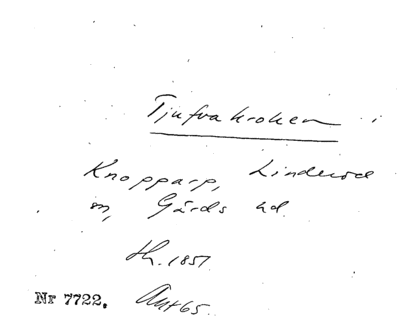 Tjufvakroken i
Knopparp, Linderöd
sn, Gärds hd.
th. 1851
Nr 7722. Ant 65.